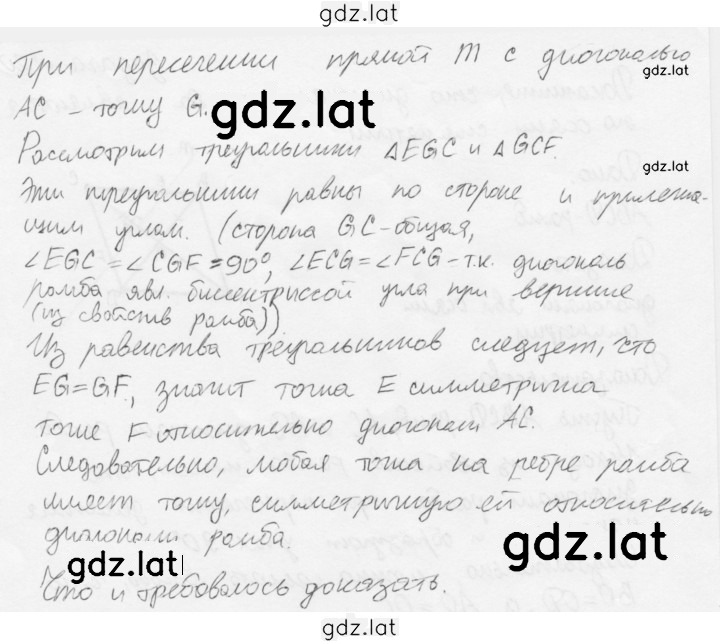 gdz.lat
При пересечении прямой m с диагональю
gdz.lat
AC - точку G.
gdz.lat
Рассмотрим треугольники △EGC и △GCF.
gdz.lat
Эти треугольники равны по стороне и прилежа-
щим углам. (сторона GC-общая,
∠EGC = ∠CGF = 90°, ∠ECG = ∠FCG - т.к. диагональ
ромба явл. биссектриссой угла при вершине
(из свойств ромба))
Из равенства треугольников следует, что
EG = GF, значит точка E симметрична
точке F относительно диагонали AC.
Следовательно, любая точка на ребре ромба
имеет точку, симметричную ей относительно
диагонали ромба.
gdz.lat
gdz.lat
Что и требовалось доказать.
gdz.lat